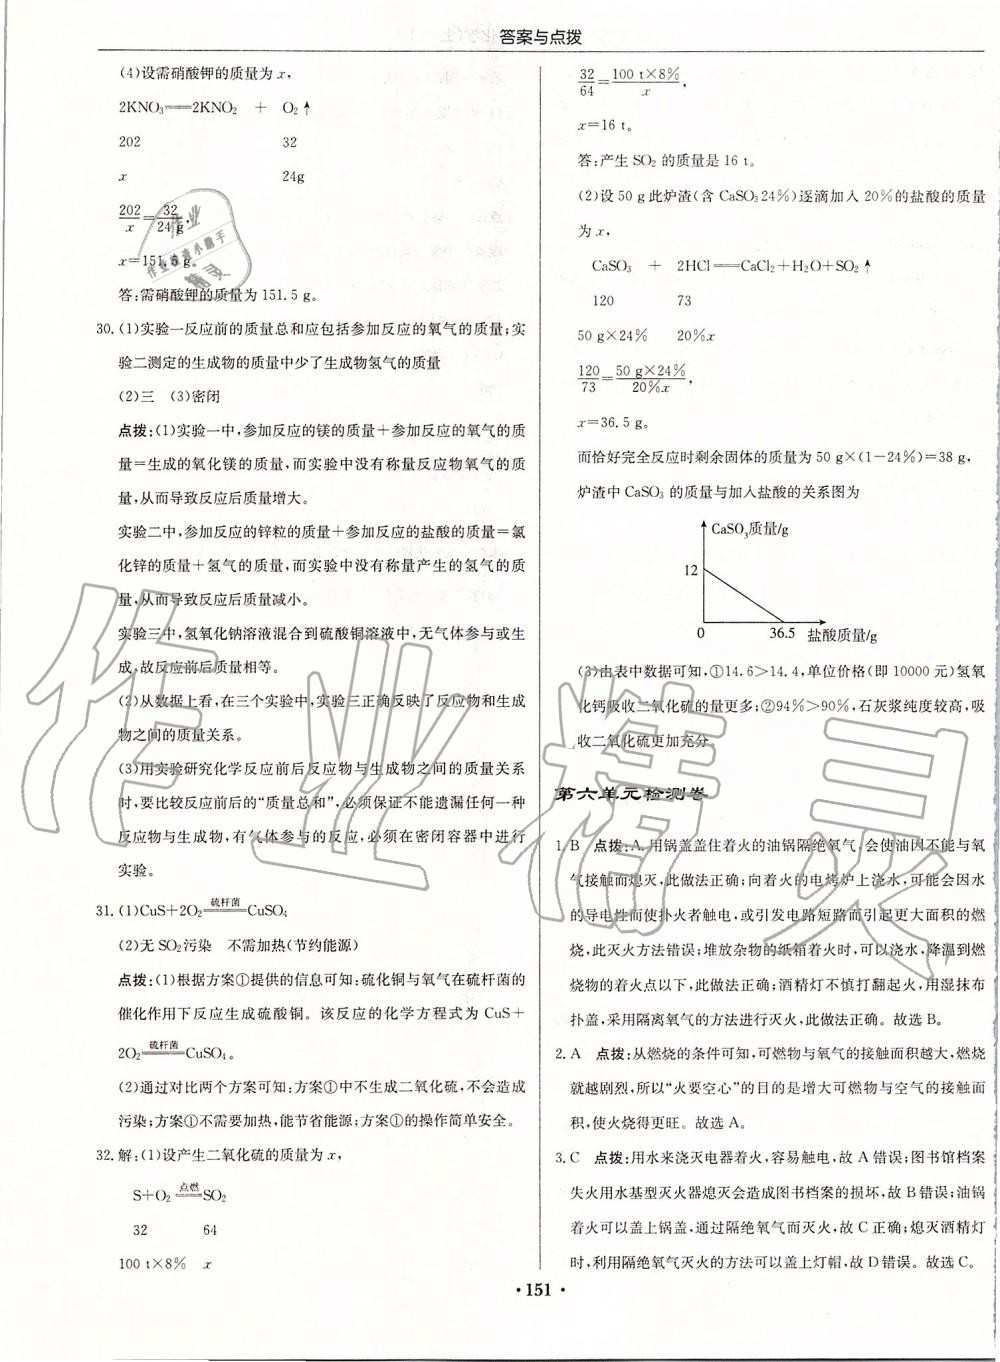 答案与点拨
(4)设需硝酸钾的质量为 x，
2KNO₃══2KNO₂ + O₂↑
202 32
x 24g
202/x=32/24 g，
x=151.5 g。
答:需硝酸钾的质量为 151.5 g。
30.(1)实验一反应前的质量总和应包括参加反应的氧气的质量;实
验二测定的生成物的质量中少了生成物氢气的质量
(2)三 (3)密闭
点拨:(1)实验一中,参加反应的镁的质量+参加反应的氧气的质
量=生成的氧化镁的质量,而实验中没有称量反应物氧气的质
量,从而导致反应后质量增大。
实验二中,参加反应的锌粒的质量+参加反应的盐酸的质量=氯
化锌的质量+氢气的质量,而实验中没有称量产生的氢气的质
量,从而导致反应后质量减小。
实验三中,氢氧化钠溶液混合到硫酸铜溶液中,无气体参与或生
成,故反应前后质量相等。
(2)从数据上看,在三个实验中,实验三正确反映了反应物和生成
物之间的质量关系。
(3)用实验研究化学反应前后反应物与生成物之间的质量关系
时,要比较反应前后的“质量总和”,必须保证不能遗漏任何一种
反应物与生成物,有气体参与的反应,必须在密闭容器中进行
实验。
31.(1)CuS+2O₂ ══硫杆菌══ CuSO₄
(2)无 SO₂污染 不需加热(节约能源)
点拨:(1)根据方案①提供的信息可知:硫化铜与氧气在硫杆菌的
催化作用下反应生成硫酸铜。该反应的化学方程式为 CuS+
2O₂ ══硫杆菌══ CuSO₄。
(2)通过对比两个方案可知:方案①中不生成二氧化硫,不会造成
污染;方案①不需要加热,能节省能源;方案①的操作简单安全。
32.解:(1)设产生二氧化硫的质量为 x，
S+O₂ ══点燃══ SO₂
32 64
100 t×8% x
32/64=100 t×8%/x，
x=16 t。
答:产生 SO₂ 的质量是 16 t。
(2)设 50 g 此炉渣(含 CaSO₃24%)逐滴加入 20%的盐酸的质量
为 x，
CaSO₃ + 2HCl══CaCl₂+H₂O+SO₂↑
120 73
50 g×24% 20%x
120/73=50 g×24%/20%x，
x=36.5 g。
而恰好完全反应时剩余固体的质量为 50 g×(1-24%)=38 g,
炉渣中 CaSO₃ 的质量与加入盐酸的关系图为
CaSO₃质量/g
12
0 36.5 盐酸质量/g
(3)由表中数据可知,①14.6>14.4,单位价格(即 10000 元)氢氧
化钙吸收二氧化硫的量更多;②94%>90%,石灰浆纯度较高,吸
收二氧化硫更加充分
第六单元检测卷
1.B 点拨:A.用锅盖盖住着火的油锅隔绝氧气,会使油因不能与氧
气接触而熄灭,此做法正确;向着火的电烤炉上浇水,可能会因水
的导电性而使扑火者触电,或引发电路短路而引起更大面积的燃
烧,此灭火方法错误;堆放杂物的纸箱着火时,可以浇水,降温到燃
烧物的着火点以下,此做法正确;酒精灯不慎打翻起火,用湿抹布
扑盖,采用隔离氧气的方法进行灭火,此做法正确。故选 B。
2.A 点拨:从燃烧的条件可知,可燃物与氧气的接触面积越大,燃烧
就越剧烈,所以“火要空心”的目的是增大可燃物与空气的接触面
积,使火烧得更旺。故选 A。
3.C 点拨:用水来浇灭电器着火,容易触电,故 A 错误;图书馆档案
失火用水基型灭火器熄灭会造成图书档案的损坏,故 B 错误;油锅
着火可以盖上锅盖,通过隔绝氧气而灭火,故 C 正确;熄灭酒精灯
时,利用隔绝氧气灭火的方法可以盖上灯帽,故 D 错误。故选 C。
· 151 ·
作业精灵